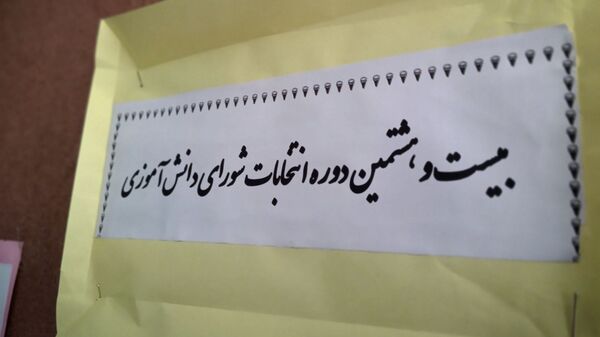 بیست و هشتمین دوره انتخابات شورای دانش آموزی